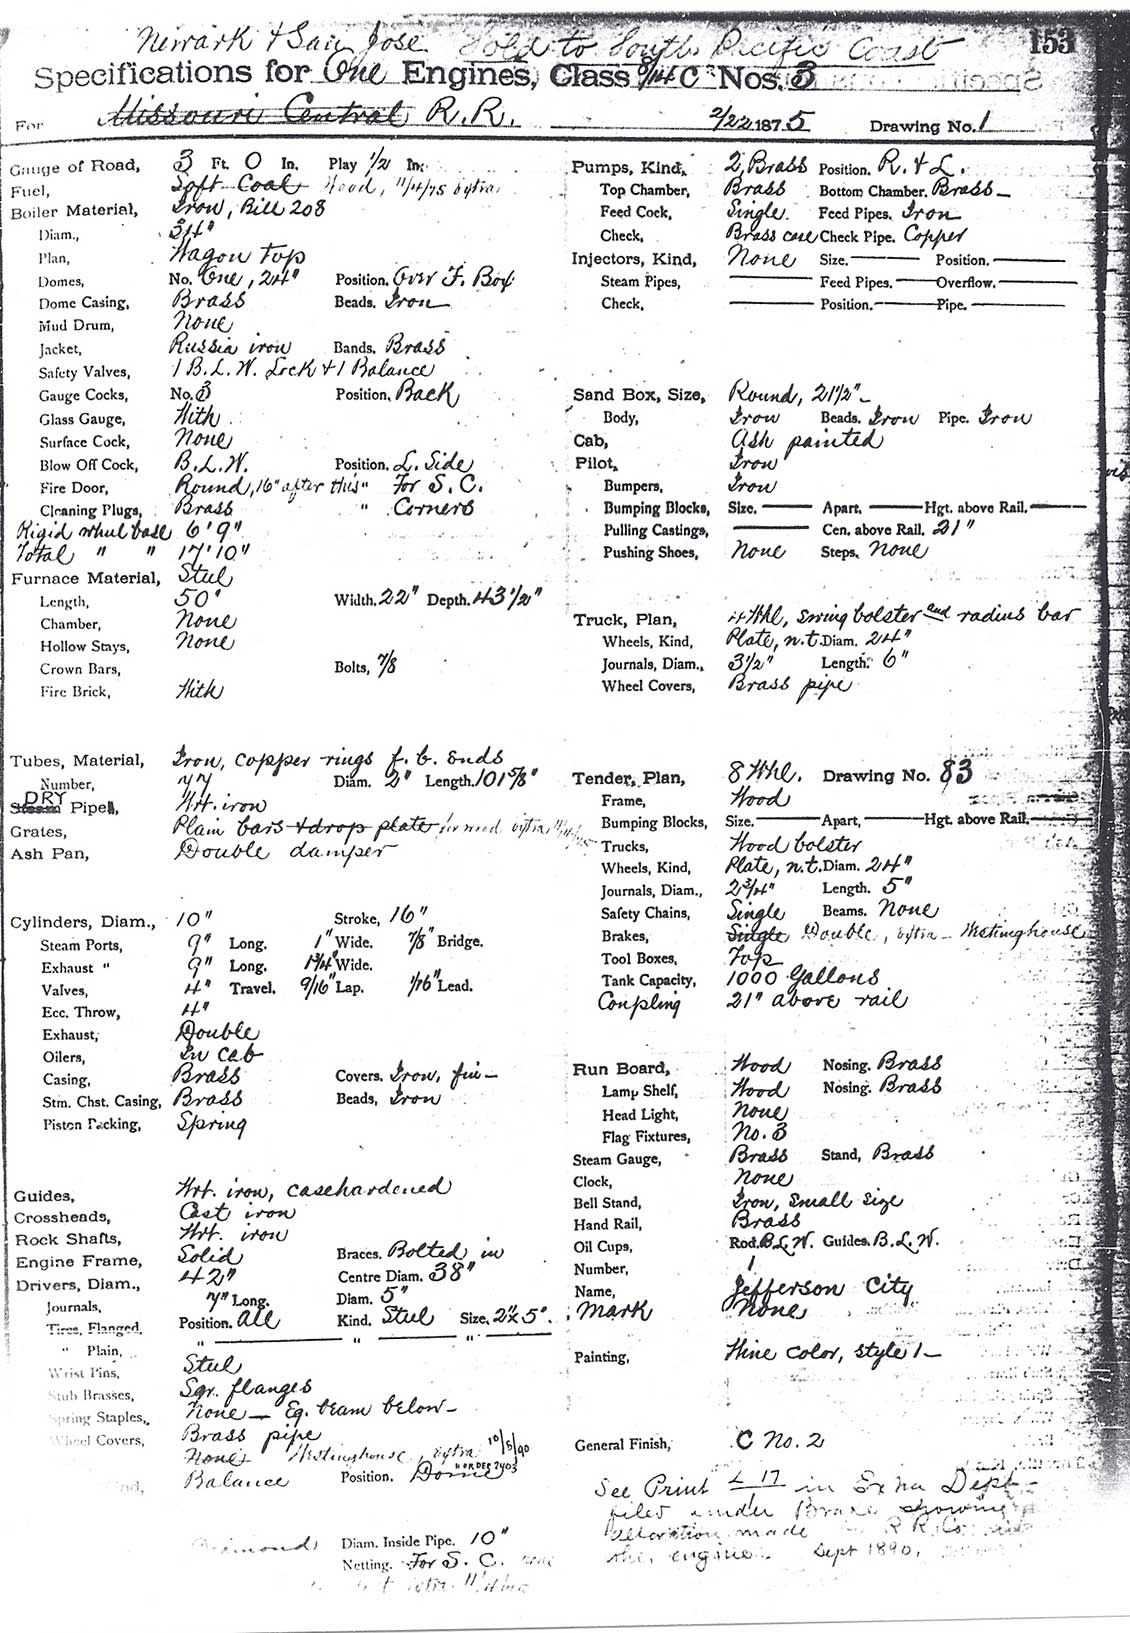 Newark & San Jose Sold to South Pacific Coast
153
Specifications for One Engines, Class 8/14 C Nos. 3
For Missouri Central R.R. 2/22 1875 Drawing No. 1
Gauge of Road, 3 Ft. 0 In. Play 1/2 In.
Fuel, Soft Coal Wood, 11/4/75 extra
Boiler Material, Iron, Bill 208
Diam., 34"
Plan, Wagon top
Domes, No. One, 24" Position. Over F. Box
Dome Casing, Brass Beads. Iron
Mud Drum, None
Jacket, Russia iron Bands. Brass
Safety Valves, 1 B.L.W. Lock & 1 Balance
Gauge Cocks, No. 3 Position. Back
Glass Gauge, With
Surface Cock, None
Blow Off Cock, B.L.W. Position. L. Side
Fire Door, Round, 16" after this " For S.C.
Cleaning Plugs, Brass " Corners
Rigid wheel base 6' 9"
Total " " 17' 10"
Furnace Material, Steel
Length, 50" Width. 22" Depth. 43 1/2"
Chamber, None
Hollow Stays, None
Crown Bars, Bolts, 7/8
Fire Brick, With
Tubes, Material, Iron, copper rings f. b. ends
Number, 77 Diam. 2" Length. 101 5/8"
DRY
Steam Pipes, Wrt. iron
Grates, Plain bars & drop plate for wood extra
Ash Pan, Double damper
Cylinders, Diam., 10" Stroke, 16"
Steam Ports, 9" Long. 1" Wide. 7/8" Bridge.
Exhaust " 9" Long. 1 3/4" Wide.
Valves, 4" Travel. 9/16" Lap. 1/16" Lead.
Ecc. Throw, 4"
Exhaust, Double
Oilers, In cab
Casing, Brass Covers. Iron, fin—
Stm. Chst. Casing, Brass Beads, Iron
Piston Packing, Spring
Guides, Wrt. iron, casehardened
Crossheads, Cast iron
Rock Shafts, Wrt. iron
Engine Frame, Solid Braces. Bolted in
Drivers, Diam., 42" Centre Diam. 38"
Journals, 7" Long. Diam. 5"
Tires, Flanged, Position. All Kind. Steel Size. 2 1/4 x 5".
" Plain, " "
Wrist Pins, Steel
Stub Brasses, Sqr. flanges
Spring Staples, None — Eq. beam below—
Wheel Covers, Brass pipe
None Westinghouse, extra 10/8/90
" ORDER 2403
Balance Position. Dome
Diamond Diam. Inside Pipe. 10"
Netting. For S.C.
extra
Pumps, Kind, 2, Brass Position. R. & L.
Top Chamber, Brass Bottom Chamber. Brass—
Feed Cock, Single. Feed Pipes. Iron
Check, Brass case Check Pipe. Copper
Injectors, Kind, None Size. Position.
Steam Pipes, Feed Pipes. Overflow.
Check, Position. Pipe.
Sand Box, Size, Round, 21 1/2"—
Body, Iron Beads. Iron Pipe. Iron
Cab, Ash painted
Pilot, Iron
Bumpers, Iron
Bumping Blocks, Size. Apart. Hgt. above Rail.
Pulling Castings, Cen. above Rail. 21"
Pushing Shoes, None Steps. None
Truck, Plan, 4 Whl, swing bolster and radius bar
Wheels, Kind, Plate, n.t. Diam. 24"
Journals, Diam., 3 1/2" Length. 6"
Wheel Covers, Brass pipe
Tender, Plan, 8 Whl. Drawing No. 83
Frame, Wood
Bumping Blocks, Size. Apart, Hgt. above Rail.
Trucks, Wood bolster
Wheels, Kind, Plate, n.t. Diam. 24"
Journals, Diam., 2 3/4" Length. 5"
Safety Chains, Single Beams. None
Brakes, Single Double, extra — Westinghouse
Tool Boxes, Top
Tank Capacity, 1000 Gallons
Coupling 21" above rail
Run Board, Wood Nosing. Brass
Lamp Shelf, Wood Nosing. Brass
Head Light, None
Flag Fixtures, No. 3
Steam Gauge, Brass Stand, Brass
Clock, None
Bell Stand, Iron, small size
Hand Rail, Brass
Oil Cups, Rod. B.L.W. Guides. B.L.W.
Number, 1
Name, Jefferson City
Mark None
Painting, Wine color, style 1—
General Finish, C No. 2
See Print L 17 in Extra Dept
1
filed under Brake showing
alteration made R R Co.
the engine. Sept 1890.